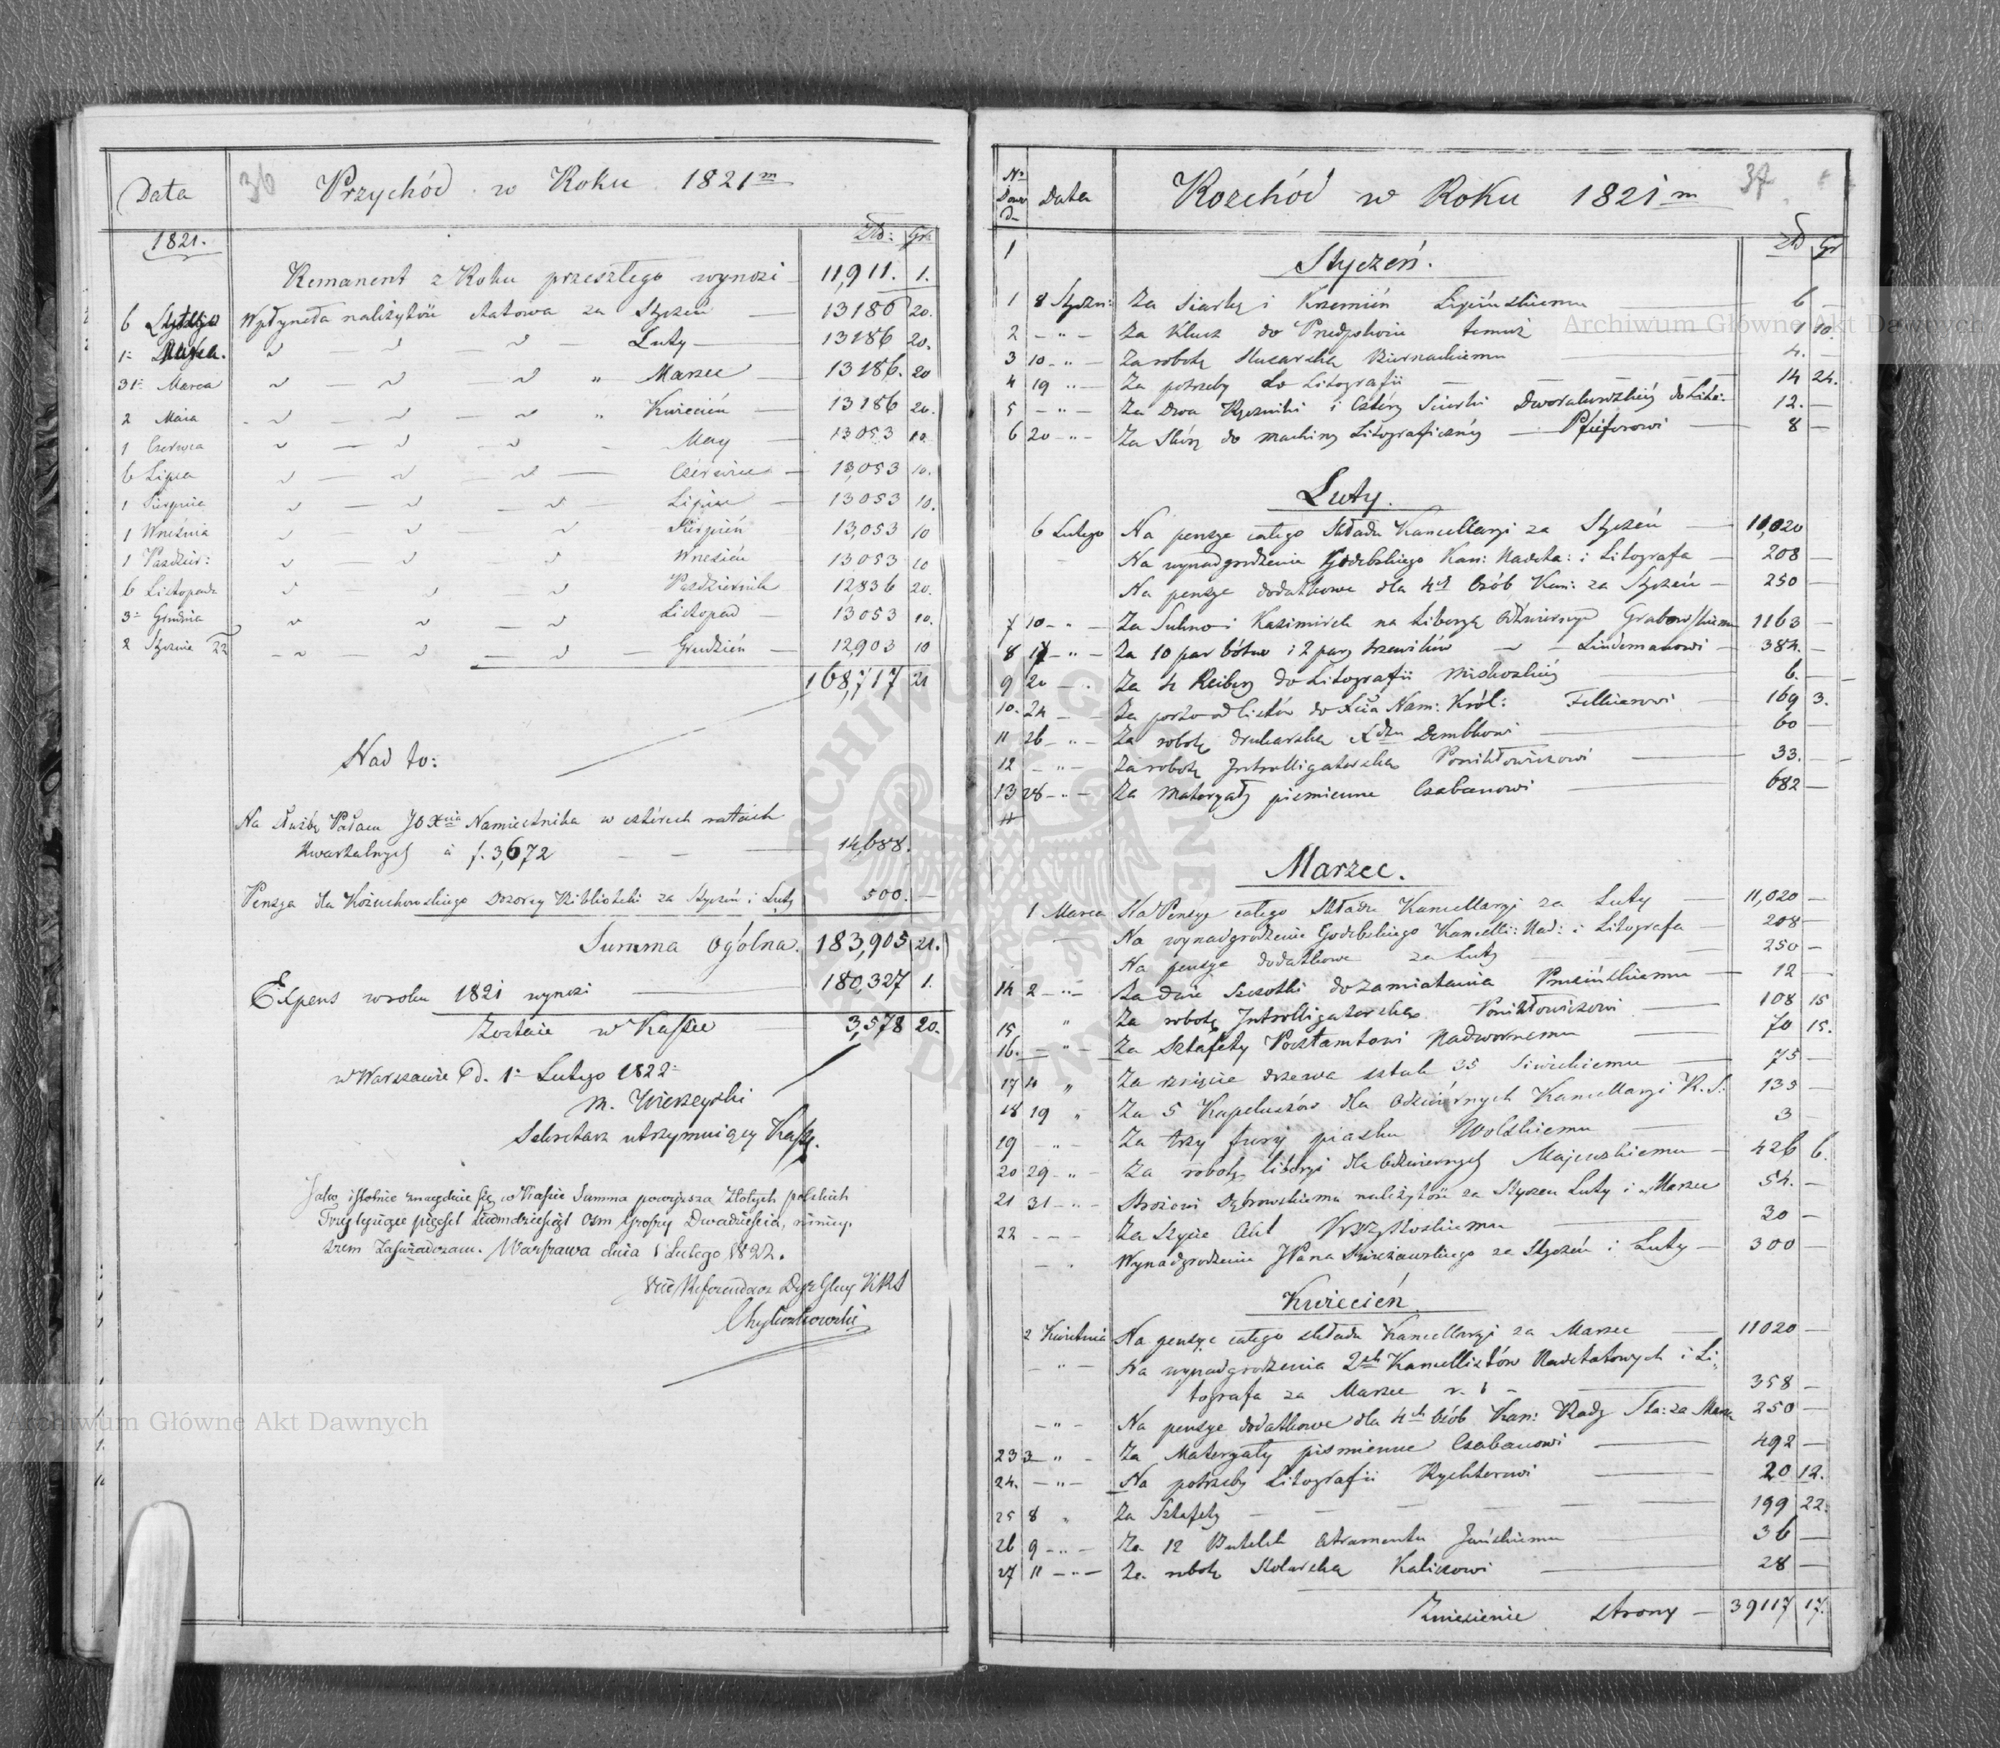 36
Data
Przychód w Roku 1821 m
1821.
Złd: Gr:
Remanent z Roku przeszłego wynosi 11,911. 1.
6 Lutego Wpłynęła należytość etatowa za Styczeń — 13186 20.
1 Marca. " — " " Luty — 13186 20.
31 Marca " — " — " " Marzec — 13186. 20
2 Maia " — " — " " Kwiecień — 13186 20.
1 Czerwca " — " — " May — 13053 10
6 Lipca " — " — " — Czerwiec — 13,053 10.
1 Sierpnia " — " — " Lipiec — 13053 10.
1 Września " — " — " Sierpień 13,053 10
1 Paździer: " — " — " Wrzesień 13053 10
6 Listopada " " " Październik 12,836 20.
3 Grudnia " " — " Listopad — 13053 10.
2 Stycznia 22 " — " — " — Grudzień — 12,903 10
168,717 21
Nad to:
Na służbę Pałacu JO Xcia Namiestnika w czterech ratach
kwartalnych à f. 3,672 — — — 14,688.
Pensya dla Kożuchowskiego Dozorcy Biblioteki za Styczeń i Luty 500. —
Summa Ogólna. 183,905 21.
Expens w roku 1821 wynosi — 180,327 1.
Zostaie w Kassie 3,578 20.
w Warszawie d. 1 Lutego 1822
M. Wierzeyski
Sekretarz utrzymuiący Kassę.
Jako istotnie znayduie się w Kassie Summa powyższa Złotych polskich
Trzy tysiące pięćset siedmdziesiąt ośm Groszy Dwadzieścia, niniey-
szem Zaświadczam. Warszawa dnia 1 Lutego 1822.
37
No Dowo d. Data
Rozchód w Roku 1821 m
złd Gr
1
Styczeń.
1 8 Styczn: Za Siarkę i Krzemień — 6 —
2 — " — Za Klucz do Przedpokoiu temuż — 1 10.
3 10 — " — Za robotę Slusarską Biernackiemu — 4. —
4 19 " — Za potrzeby do Litografii — — — — 14 24.
5 — " — Za Dwa Ręczniki i Cztery Ścierki do Lito: 12. —
6 20 — " — Za Skórę do machiny Litograficzney — 8 —
Luty.
6 Lutego Na pensye całego Składu Kancellaryi za Styczeń — 11,020
Na wynadgrodzenie Godebskiego Kan: Nadeta: i Litografa — 208 —
Na pensye dodatkowe dla 4ch Osób Kan: za Styczeń — 250 —
7 10 — " Za Sukno i Kazimirek na Liberyą Odźwiernych Grabowskiemu 1163 —
8 17 — " — Za 10 par bótów i 2 pary trzewików — " — Lindemanowi — 384. —
9 20 — " Za 4 Reibery do Litografii — 6. —
10. 24 — — Za porto od listów do Xcia Nam: Król: — 169 3.
11 26 — " — Za robotę drukarską Xdzu Dembkowi — 60 —
12 — " — Za robotę Introlligatorską Ponikłowiczowi — 33. —
13 28 — " — Za Materyały piśmienne Czabanowi — 682 —
Marzec.
1 Marca Na Pensye całego składu Kancellaryi za Luty — 11,020 —
Na wynadgrodzenie Godebskiego Kancelli: Nad: i Litografa — 208 —
Na pensye dodatkowe za Luty — — 250 —
14 2 — " — Za dwie Szczotki do zamiatania — 12 —
15. " Za robotę Introlligatorską. Ponikłowiczowi — 108 15
16. — " — Za Sztafety Pocztamtowi Nadwornemu — 70 15.
17 4 " Za rznięcie drzewa sztuk 35 Siwickiemu — 75 —
18 19 " Za 5 Kapeluszów dla Odźwiernych Kancellaryi R. S: 135 —
19 — " — Za trzy fury piasku Wolskiemu — 3 —
20 29 — " — Za robotę liberyi dla Odźwiernych Majewskiemu — 426 6.
21 31 — " — Stróżowi Dąbrowskiemu należytość za Styczeń Luty i Marzec 54. —
22 — — — Za Szycie Akt — 30 —
— " Wynadgrodzenie za Styczeń i Luty — 300
Kwiecień
2 Kwietnia Na pensye całego składu Kancellaryi za Marzec — 11020 —
— " — Na wynadgrodzenia 2ch Kancellistów Nadetatowych i Li-
tografa za Marzec r. b — 358 —
— " — Na pensye dodatkowe dla 4ch Osób Kan: Rady Sta: za Marzec 250 —
23 3 — " — Za Materyały piśmienne Czabanowi — 492 —
24. — " — Na potrzeby Litografii Rychterowi — 20 12.
25 8 " Za Sztafety — — — — 199 22.
26 9 — " — Za 12 Butelek Atramentu Jańskiemu — 36 —
27 11 — " — Za robotę Stolarską Kaliszowi — 28 —
Zniesienie strony — 39117 17.
Archiwum Główne Akt Dawnych
Archiwum Główne Akt Dawnych
ARCHIWUM GŁÓWNE AKT DAWNYCH